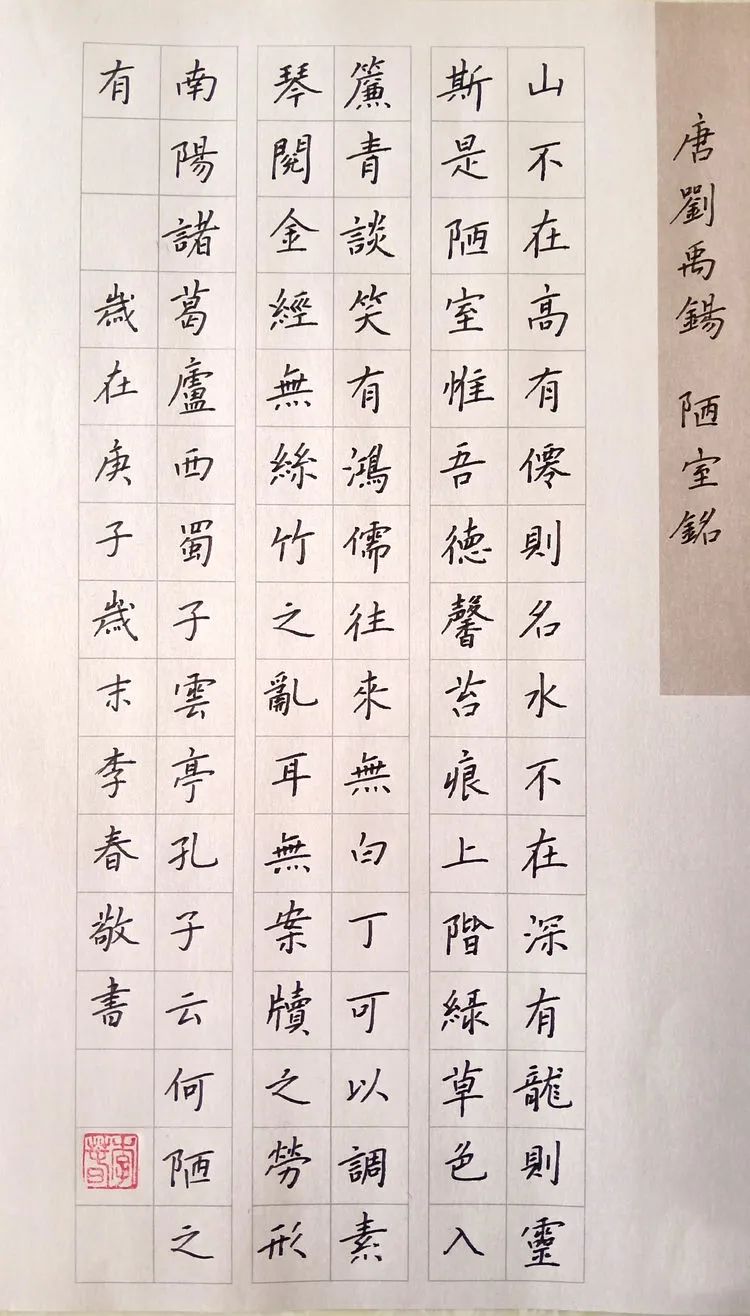 唐劉禹錫 陋室銘
山不在高有僊則名水不在深有龍則靈
斯是陋室惟吾德馨苔痕上階緑草色入
簾青談笑有鴻儒往來無白丁可以調素
琴閱金經無絲竹之亂耳無案牘之勞形
南陽諸葛廬西蜀子雲亭孔子云何陋之
有 歲在庚子歲末李春敬書
李春